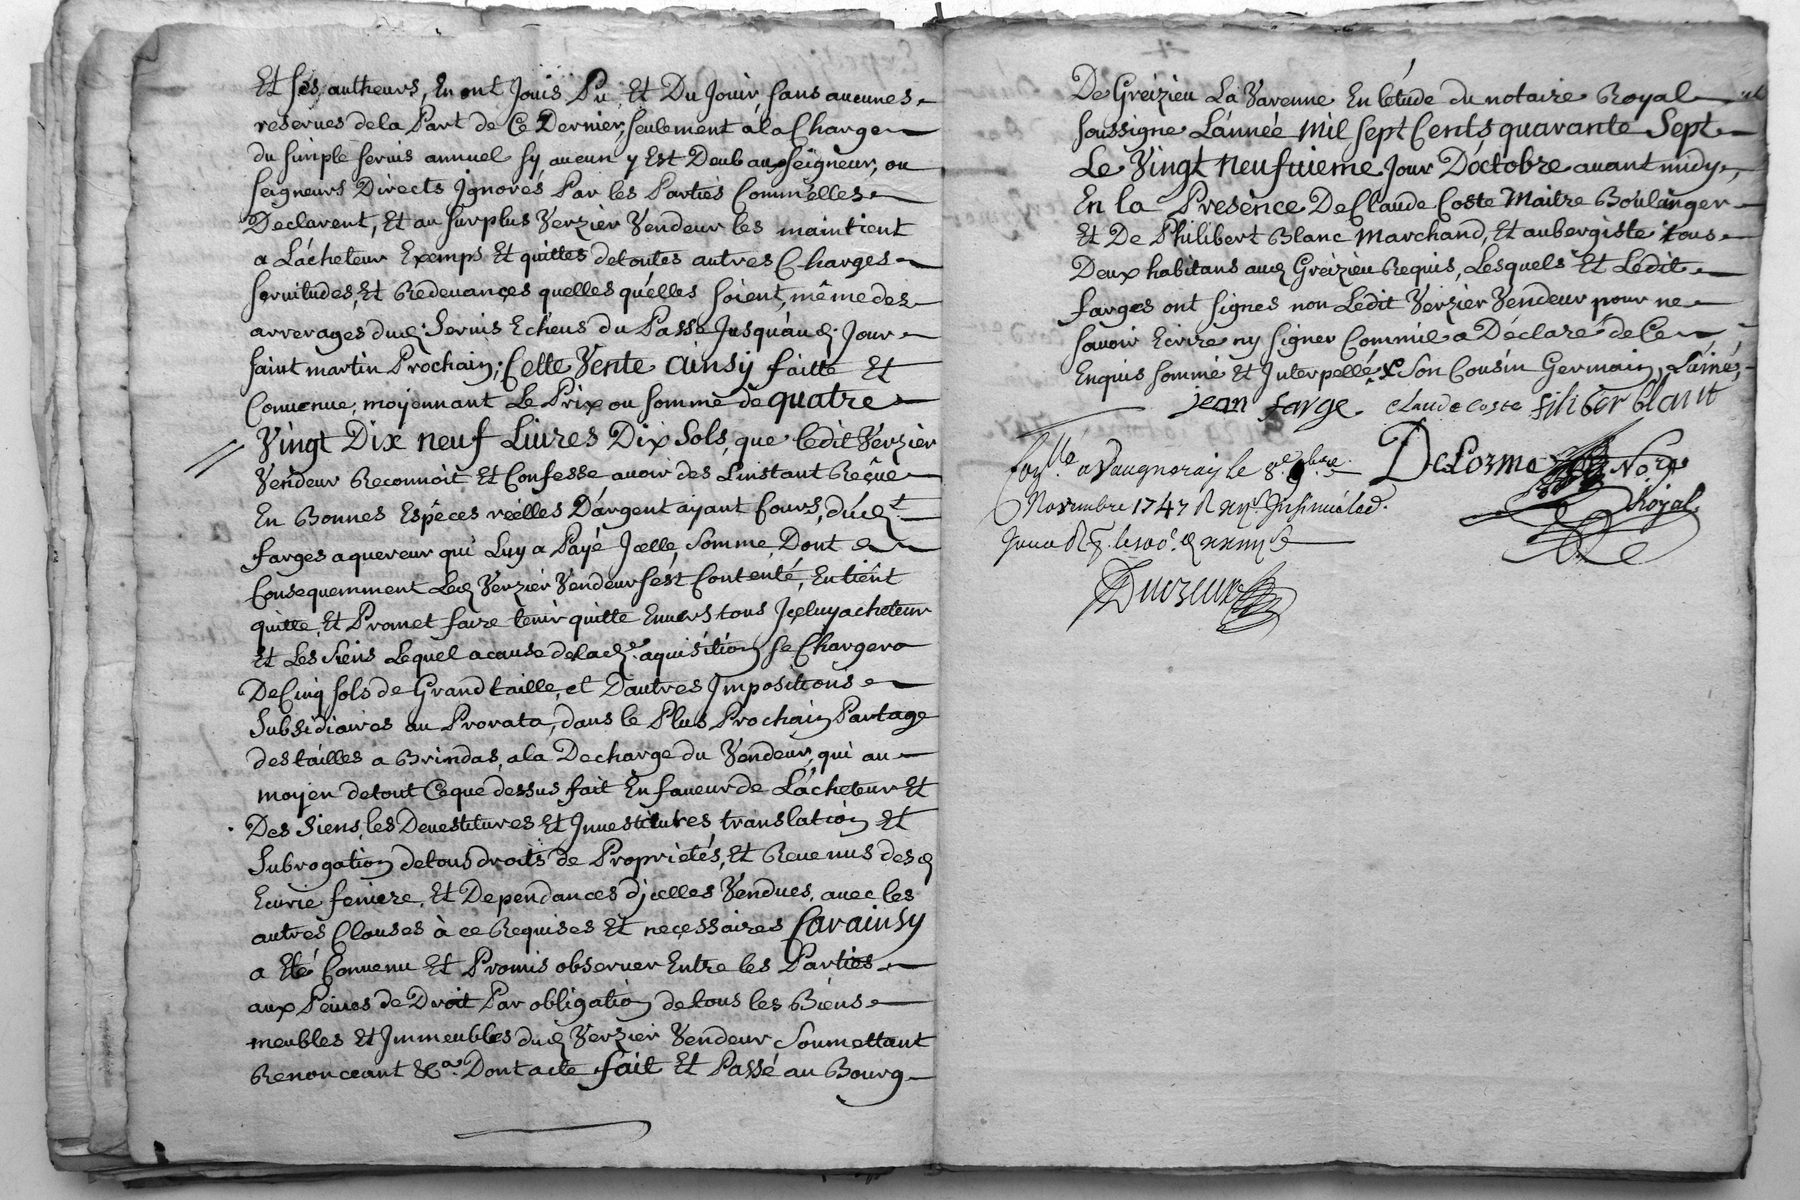 Et ses autheurs, En ont Jouis Pu, Et Du Jouir, sans aucunes
reserves de la Part de Ce Dernier, seulement à la Charge
du simple servis annuel sy aucun y Est Deub aux Seigneur, ou
seigneurs Directs Ignorés Par les Parties Comm'elles
Declarent, Et au surplus Verzier Vendeur les maintient
a L'acheteur Exemps Et quittes de toutes autres Charges
servitudes, Et Redevançes quelles qu'elles soient, même des
arrerages dud. Servis Echeus du Passé Jusqu'aud. Jour
saint martin Prochain; Cette Vente ainsy faitte Et
Convenue, moyennant Le Prix ou somme de quatre
Vingt Dix neuf Livres Dix Sols, que ledit Verzier
Vendeur Reconnoit Et Confesse avoir des L'instant Reçüe
En Bonnes Espêces réelles D'argent ayant Cours, dud.t
farges aquereur qui Luy a Payé Jcelle Somme, Dont
Consequemment Led. Verzier Vendeur s'est Contenté, En tient
quitte, Et Promet faire tenir quitte Envers tous Jçeluy acheteur
Et Les Siens Lequel a cause de lad.e aquisition se Chargera
De Cinq sols de Grand taille, et D'autres Jmpositions
Subsidiaires au Prorata, dans le Plus Prochain Partage
des tailles a Brindas, a la Decharge du Vendeur, qui au
moyen de tout Ce que dessus fait En faveur de L'acheteur Et
Des Siens, les Devestitures Et Jnvestitures, translation Et
Subrogation de tous droits de Proprietés, Et Revenus desd.
Ecurie feniere, Et Dependances d'jcelles Vendues, avec les
autres Clauses à ce Requises Et neçessaires Car ainsy
a Eté Convenu Et Promis observer Entre les Parties
aux Peines de Droit Par obligation de tous les Biens
meubles Et Jmmeubles dud. Verzier Vendeur Soumettant
Renonceant &a. Dont acte fait Et Passé au Bourg
De Greizieu La Varenne En L'étude du notaire Royal
soussigné L'année Mil sept Cents quarante Sept
Le Vingt neufvieme Jour D'octobre avant midy,
En la Presènce De Claude Coste Maitre Boulanger
Et De Philibert Blanc Marchand, Et aubergiste tous
Deux habitans aud. Greizieu Requis, Lesquels Et Ledit
farges ont signés non Ledit Verzier Vendeur pour ne
savoir Ecrire ny signer Comm'il a Déclaré de Ce
Enquis sommé Et Jnterpellé, & Son Cousin Germain, L'ainé,
jean farge claude coste filiber blanc
DeLorme Nore
Royal.
a Vaugneray le
Novembre 1747